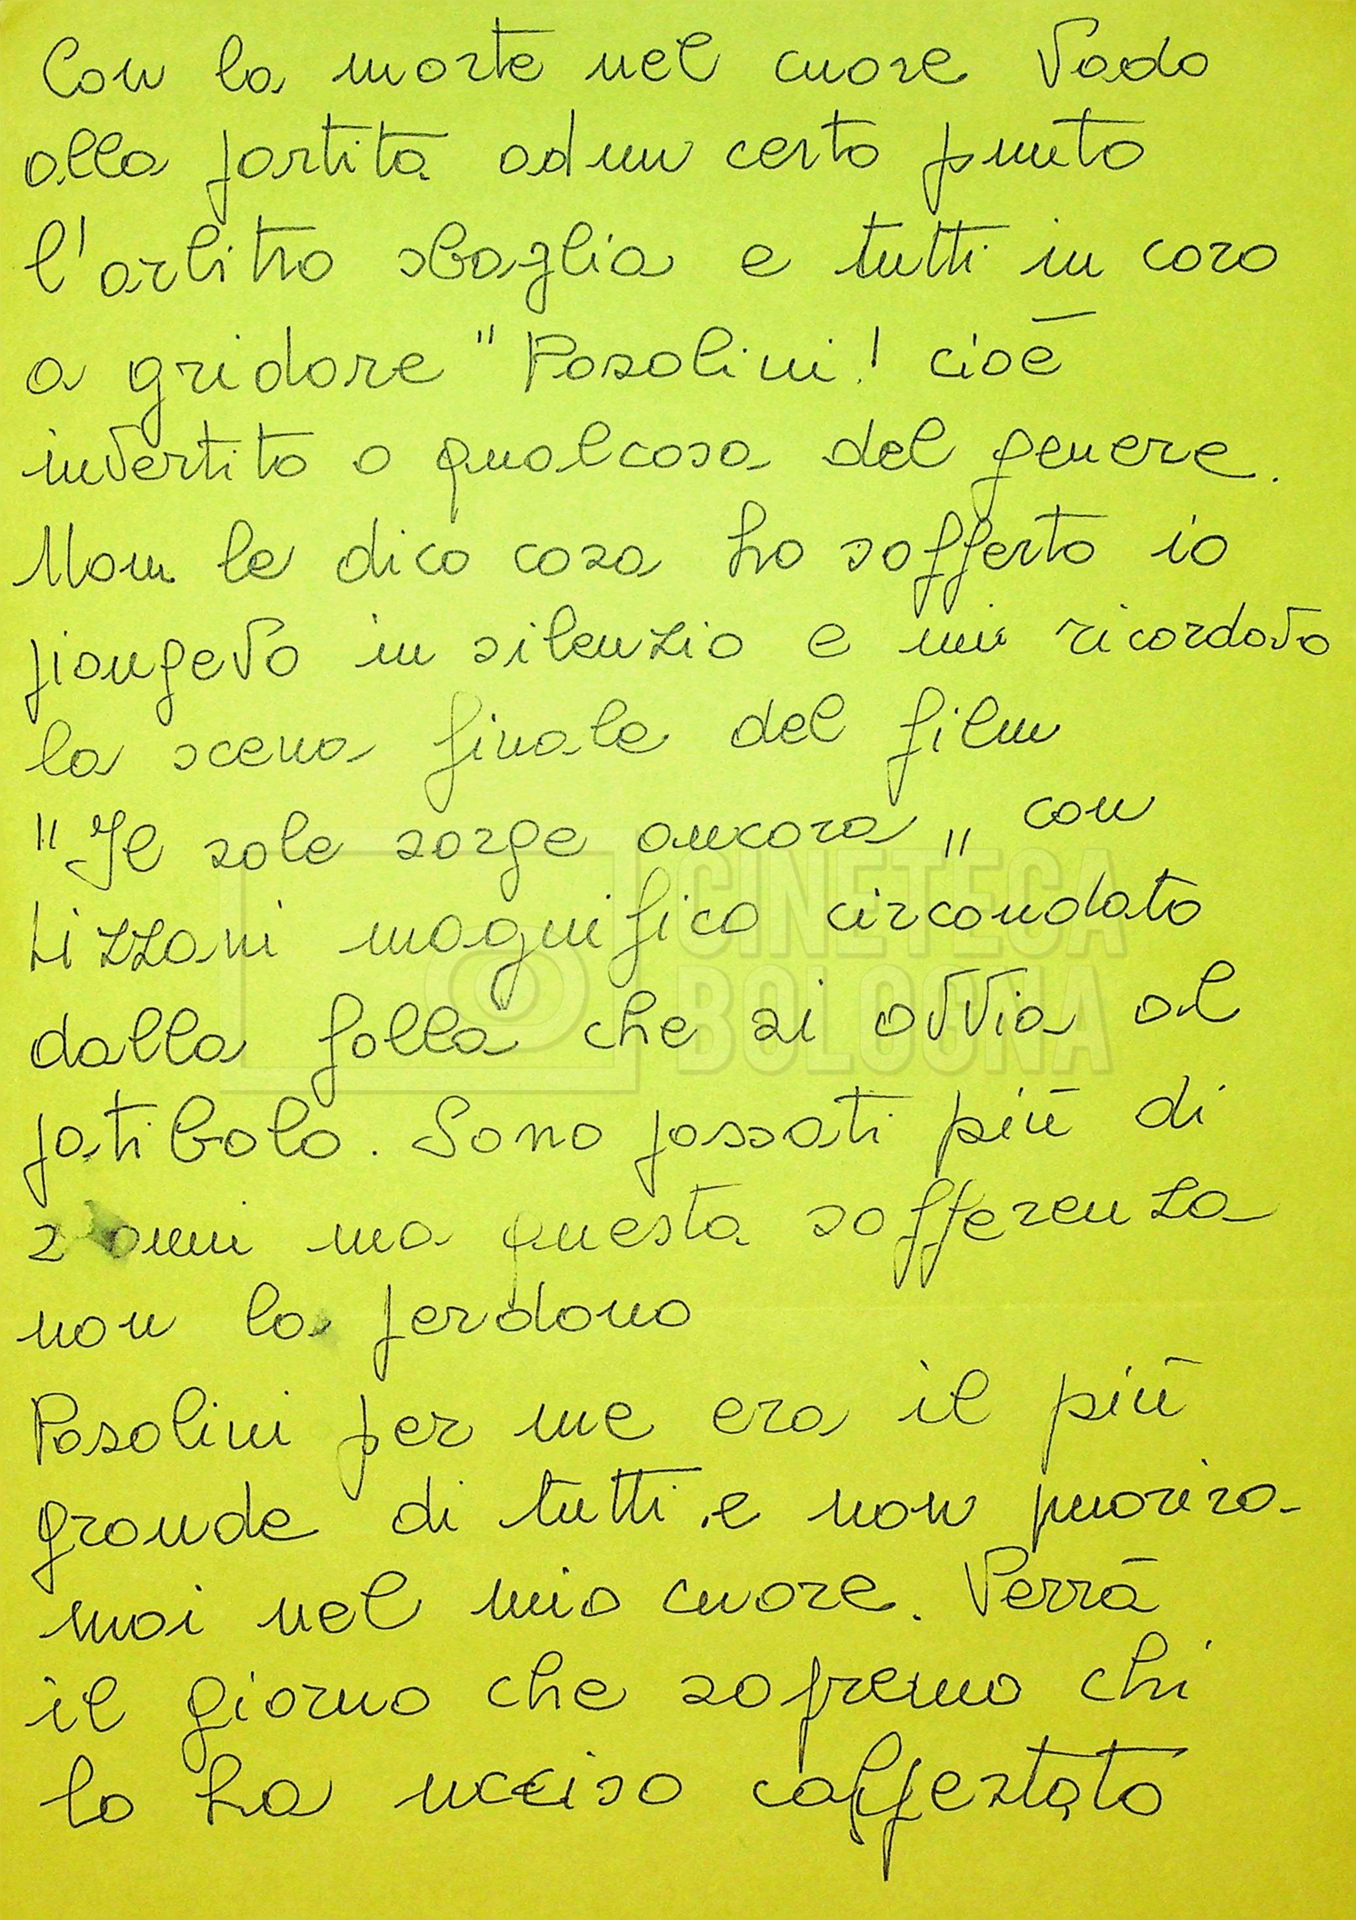 Con la morte nel cuore vado
alla partita ad un certo punto
l'arbitro sbaglia e tutti in coro
a gridare "Pasolini! cioè
invertito o qualcosa del genere.
Non le dico cosa ho sofferto io
piangevo in silenzio e mi ricordavo
la scena finale del film
"Il sole sorge ancora" con
Lizzani magnifico circondato
dalla folla che si avvia al
patibolo. Sono passati più di
2 anni ma questa sofferenza
non la perdono
Pasolini per me era il più
grande di tutti e non morirà
mai nel mio cuore. Verrà
il giorno che sapremo chi
lo ha ucciso calpestato
CINETECA
BOLOGNA